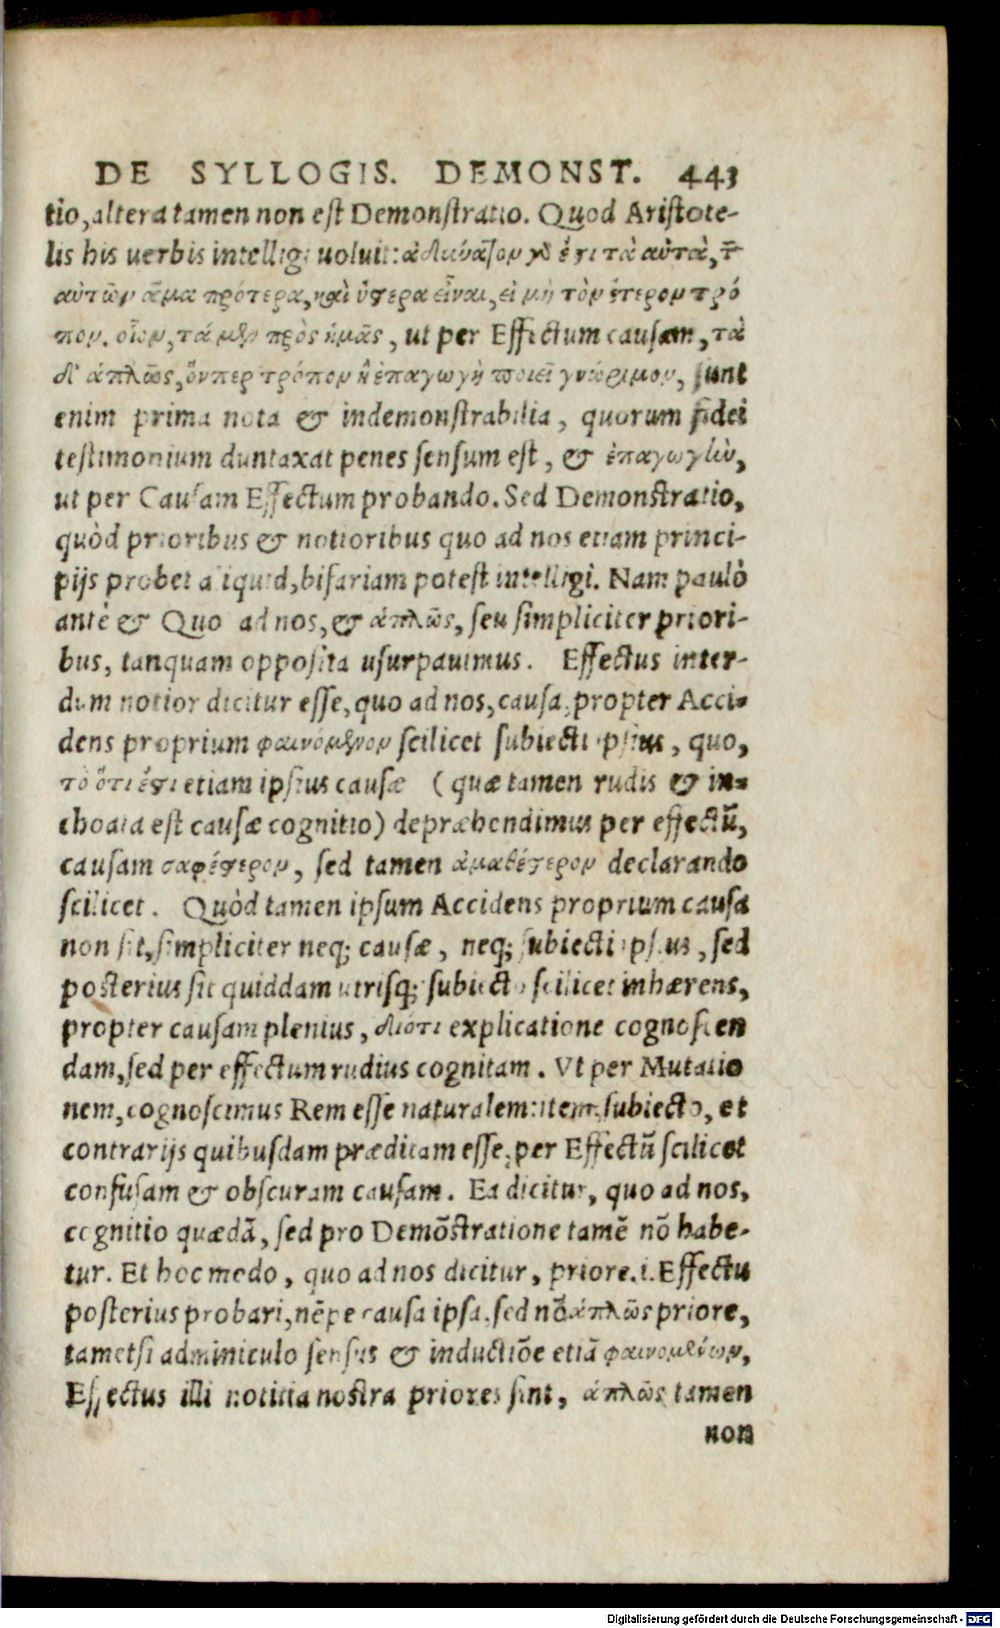 DE SYLLOGIS. DEMONST. 443
tio, altera tamen non est Demonstratio. Quod Aristote-
lis his uerbis intelligi uoluit: ἀδιύατον γδ ἐστι τὰ αὐτὰ, τ̄
αὐτῶν ἅμα πρότερα, καὶ ὕστερα εἶναι, εἰ μὴ τὸν ἕτερον τρό
πον. οἷον, τά μὲν πρὸς ἡμᾶς, ut per Effectum causam, τὰ
δ' ἁπλῶς, ὅνπερ τρόπον ἡ ἐπαγωγὴ ποιεῖ γνώριμον, sunt
enim prima nota & indemonstrabilia, quorum fidei
testimonium duntaxat penes sensum est, & ἐπαγωγὴν,
ut per Causam Effectum probando. Sed Demonstratio,
quòd prioribus & notioribus quo ad nos etiam princi-
pijs probet aliquid, bifariam potest intelligi. Nam paulò
antè & Quo ad nos, & ἁπλῶς, seu simpliciter priori-
bus, tanquam opposita usurpauimus. Effectus inter-
dum notior dicitur esse, quo ad nos, causa, propter Acci-
dens proprium φαινόμενον scilicet subiecti ipsius, quo,
τὸ ὅτι ἔστι etiam ipsius causæ (quæ tamen rudis & in-
choata est causæ cognitio) depræhendimus per effectū,
causam σαφέστερον, sed tamen ἀμαθέστερον declarando
scilicet. Quòd tamen ipsum Accidens proprium causa
non sit, simpliciter neq; causæ, neq; subiecti ipsius, sed
posterius sit quiddam utrisq; subiecto scilicet inhærens,
propter causam plenius, διότι explicatione cognoscen
dam, sed per effectum rudius cognitam. Vt per Mutatio
nem, cognoscimus Rem esse naturalem: item, subiecto, et
contrarijs quibusdam præditam esse, per Effectū scilicet
confusam & obscuram causam. Ea dicitur, quo ad nos,
cognitio quædā, sed pro Demōstratione tamē nō habe-
tur. Et hoc modo, quo ad nos dicitur, priore .i. Effectu
posterius probari, nēpe causa ipsa, sed nō ἁπλῶς priore,
tametsi adminiculo sensus & inductiōe etiā φαινομένων,
Effectus illi notitia nostra priores sint, ἁπλῶς tamen
non
Digitalisierung gefördert durch die Deutsche Forschungsgemeinschaft - DFG